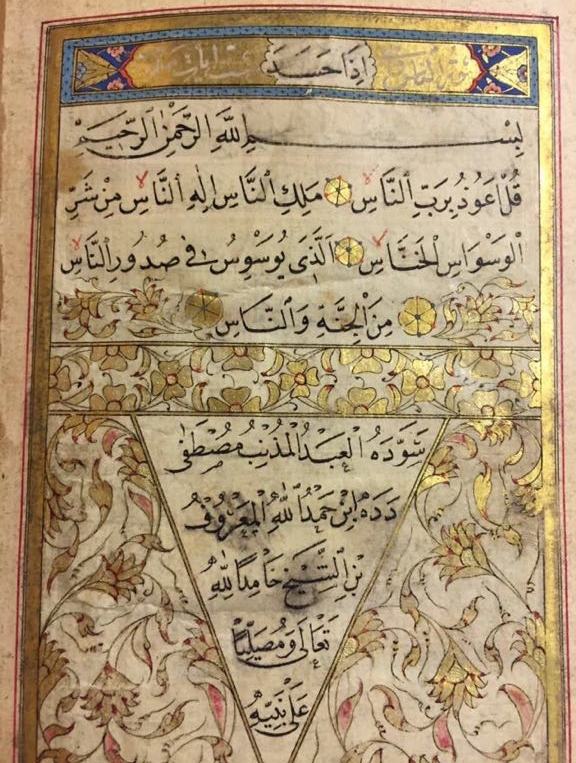 إذا حسد
بسم الله الرحمن الرحيم
قل اعوذ برب الناس ملك الناس اله الناس من شر
الوسواس الخناس الذى يوسوس فى صدور الناس
من الجنة والناس
سوده العبد المذنب مصطفى
دده ابن حمد الله المعروف
بن الشيخ حامدا لله
تعالى ومصليا
على نبيه